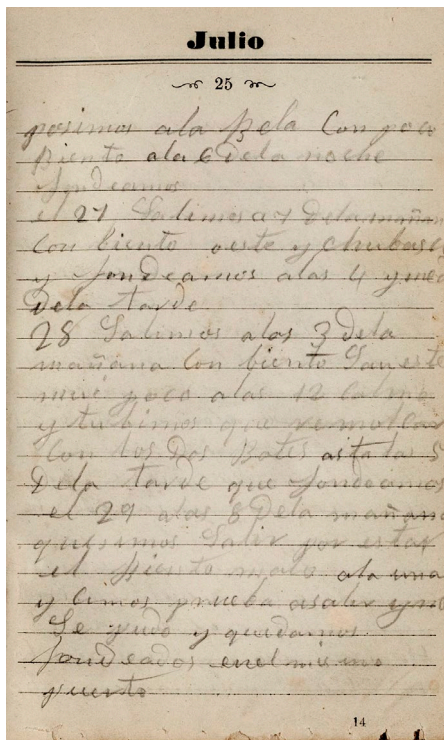 Julio
25
posimos ala Bela Con poco
biento ala 6 dela noche
fondeamos
el 27 Salimos a 7 Delamañan
Con biento oeste y chubas
y fondeamos alas 4 y me
dela tarde
28 Salimos alas 3 dela
mañana Con biento
mui poco alas 12 Calmo
y tubimos que remolcar
Con los Dos Botes asta las 5
Dela tarde que fondeamos
el 29 alas 8 Dela mañana
quisimos Salir por estar
el biento malo ala una
y cimos prueba asalir y no
Se pudo y quedamos
fondeados enel mismo
puerto
14